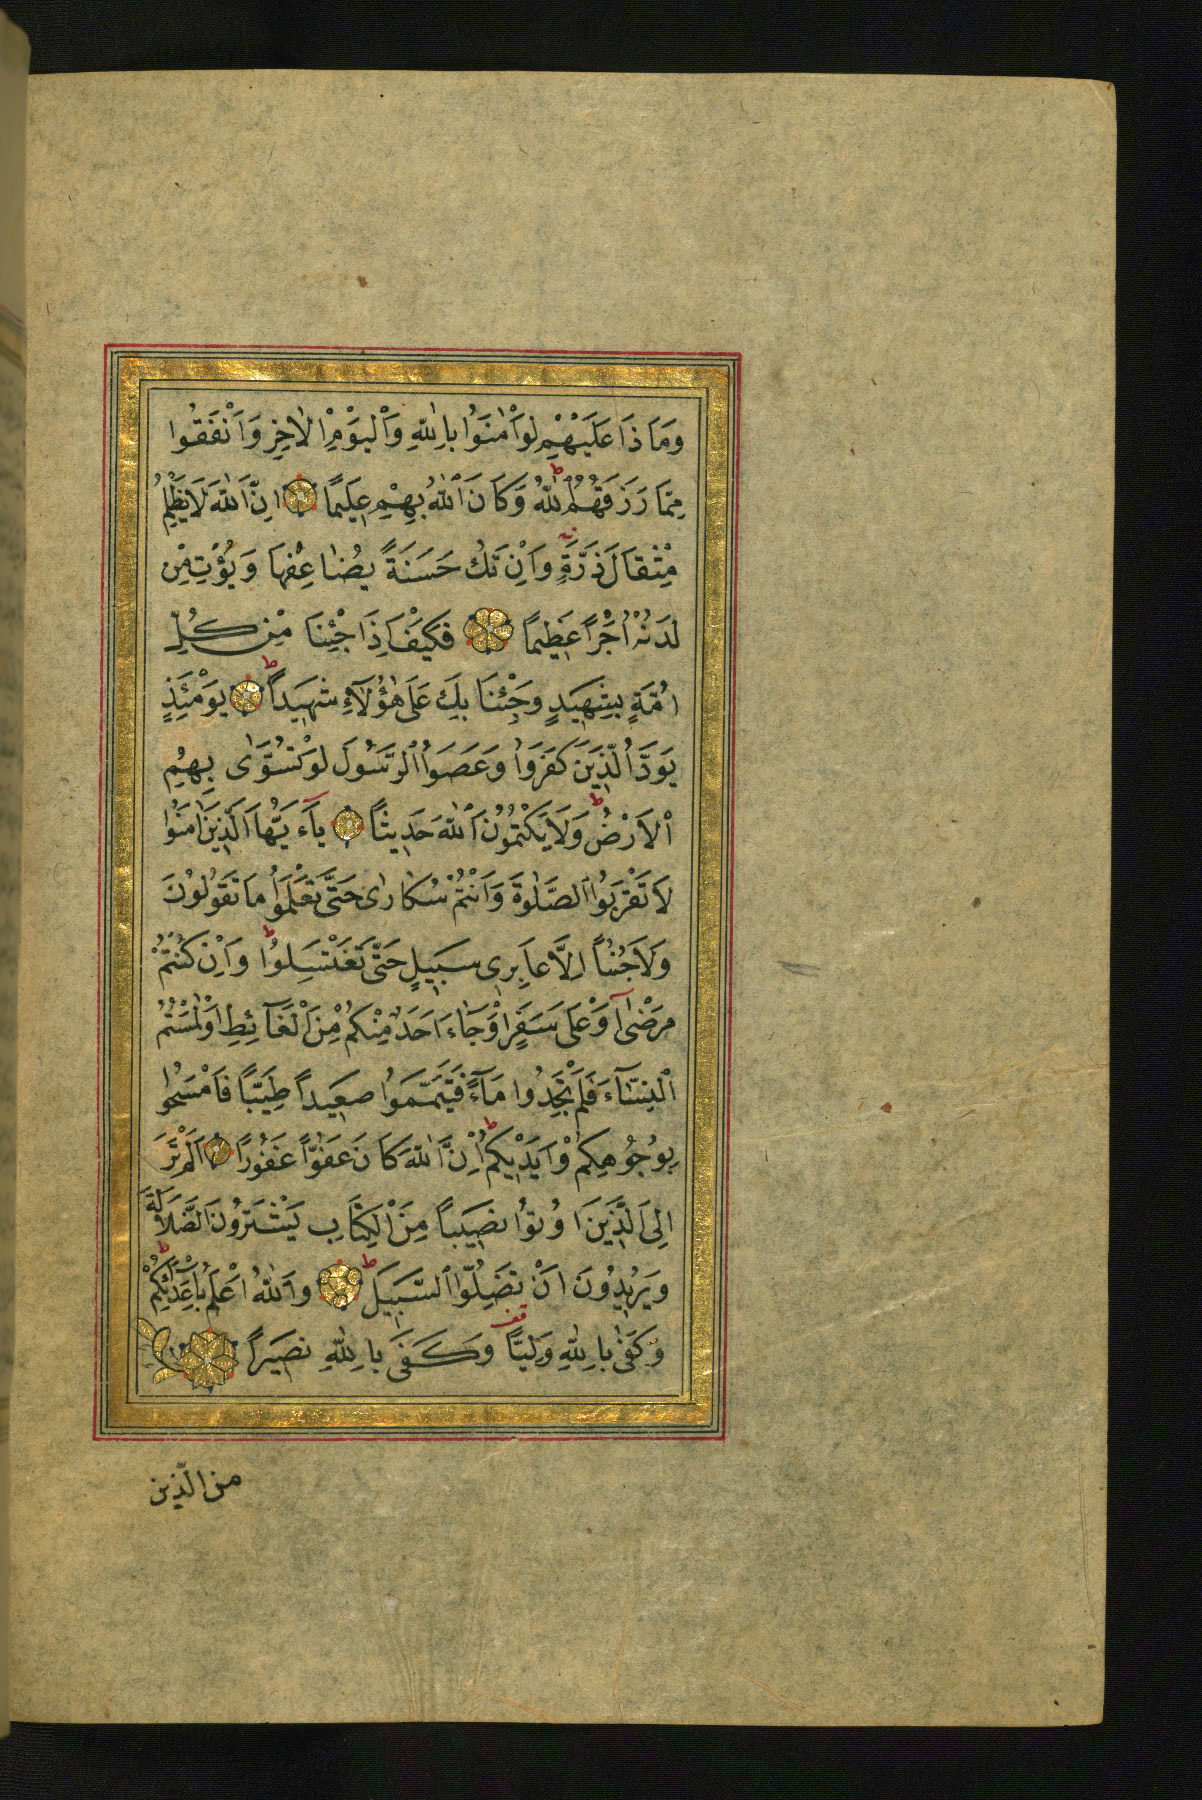 وَمَاذَا عَلَيْهِمْ لَوْ اٰمَنُوا بِاللّٰهِ وَالْيَوْمِ الْاٰخِرِ وَاَنْفَقُوا
مِمَّا رَزَقَهُمُ اللّٰهُ ط وَكَانَ اللّٰهُ بِهِمْ عَلِيمًا اِنَّ اللّٰهَ لَا يَظْلِمُ
مِثْقَالَ ذَرَّةٍ وَاِنْ تَكُ حَسَنَةً يُضَاعِفْهَا وَيُؤْتِ مِنْ
لَدُنْهُ اَجْرًا عَظِيمًا فَكَيْفَ اِذَا جِئْنَا مِنْ كُلِّ
اُمَّةٍ بِشَهِيدٍ وَجِئْنَا بِكَ عَلٰى هٰؤُلَاۤءِ شَهِيدًا ط يَوْمَئِذٍ
يَوَدُّ الَّذِينَ كَفَرُوا وَعَصَوُا الرَّسُولَ لَوْ تُسَوّٰى بِهِمُ
الْاَرْضُ ط وَلَا يَكْتُمُونَ اللّٰهَ حَدِيثًا يَاۤءَيُّهَا الَّذِينَ اٰمَنُوا
لَا تَقْرَبُوا الصَّلٰوةَ وَاَنْتُمْ سُكَارٰى حَتّٰى تَعْلَمُوا مَا تَقُولُونَ
وَلَا جُنُبًا اِلَّا عَابِرِى سَبِيلٍ حَتّٰى تَغْتَسِلُوا ط وَاِنْ كُنْتُمْ
مَرْضٰىۤ اَوْ عَلٰى سَفَرٍ اَوْ جَاۤءَ اَحَدٌ مِنْكُمْ مِنَ الْغَاۤئِطِ اَوْ لٰمَسْتُمُ
النِّسَاۤءَ فَلَمْ تَجِدُوا مَاۤءً فَتَيَمَّمُوا صَعِيدًا طَيِّبًا فَامْسَحُوا
بِوُجُوهِكُمْ وَاَيْدِيكُمْ ط اِنَّ اللّٰهَ كَانَ عَفُوًّا غَفُورًا اَلَمْ تَرَ
اِلَى الَّذِينَ اُوتُوا نَصِيبًا مِنَ الْكِتَابِ يَشْتَرُونَ الضَّلَالَةَ
وَيُرِيدُونَ اَنْ تَضِلُّوا السَّبِيلَ ط وَاللّٰهُ اَعْلَمُ بِاَعْدَاۤئِكُمْ ط
وَكَفٰى بِاللّٰهِ وَلِيًّا قف وَكَفٰى بِاللّٰهِ نَصِيرًا
من الّذين